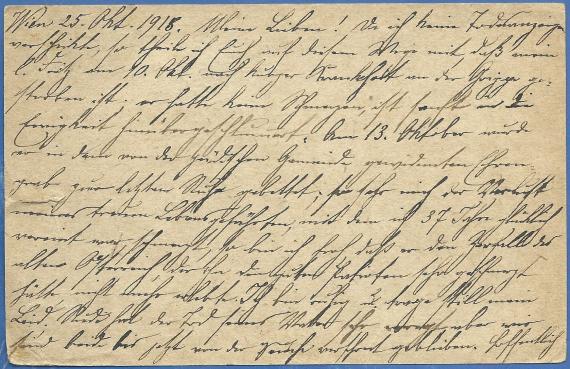 Wien 25. Okt. 1918. Meine Lieben! Da ich keine Todesanzeige
verschickte, so theile ich Euch auf diesem Wege mit, daß mein
l. Fritz am 10. Okt. nach kurzer Krankheit an der Grippe ge-
storben ist; er hatte keine Schmerzen, ist sanft in die
Ewigkeit hinübergeschlummert. Am 13. Oktober wurde
er in dem von der jüdischen Gemeinde gewidmeten Ehren-
grab zur letzten Ruhe gebettet; so sehr mich der Verlust
meines treuen Lebensgefährten, mit dem ich 37 Jahre glücklich
vereint war, schmerzt, so bin ich froh, daß er den Zerfall des
alten Österreich, der ihn den guten Patrioten sehr geschmerzt
hätte nicht mehr erlebte. Ich bin ruhig u. trage still mein
Leid. der Tod seines Vaters sehr aber wir
sind beide bis jetzt von der Seuche verschont geblieben. Hoffentlich